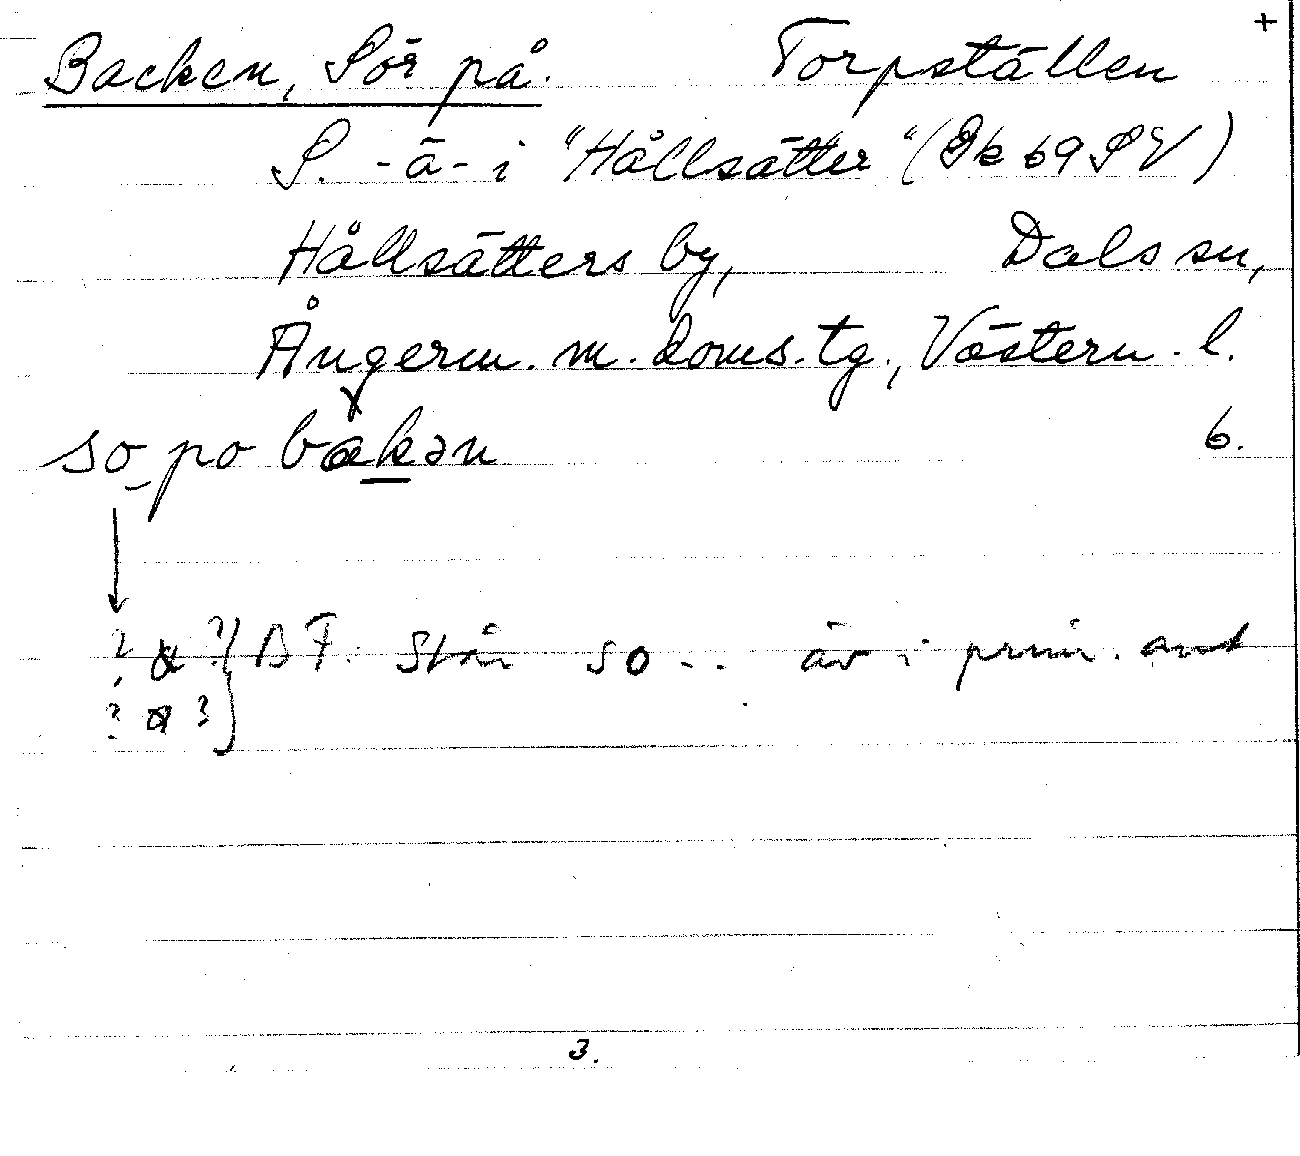 +
Backen, Sör på. Torpställen
S. -ä- i "Hållsätter" (Gk 69 SV)
Hållsätters by, Dals sn,
Ångerm. m. doms. tg., Västern. l.
so po bakən 6.
? ?} BF. står so .. äv i prim. ant
? ?
3.